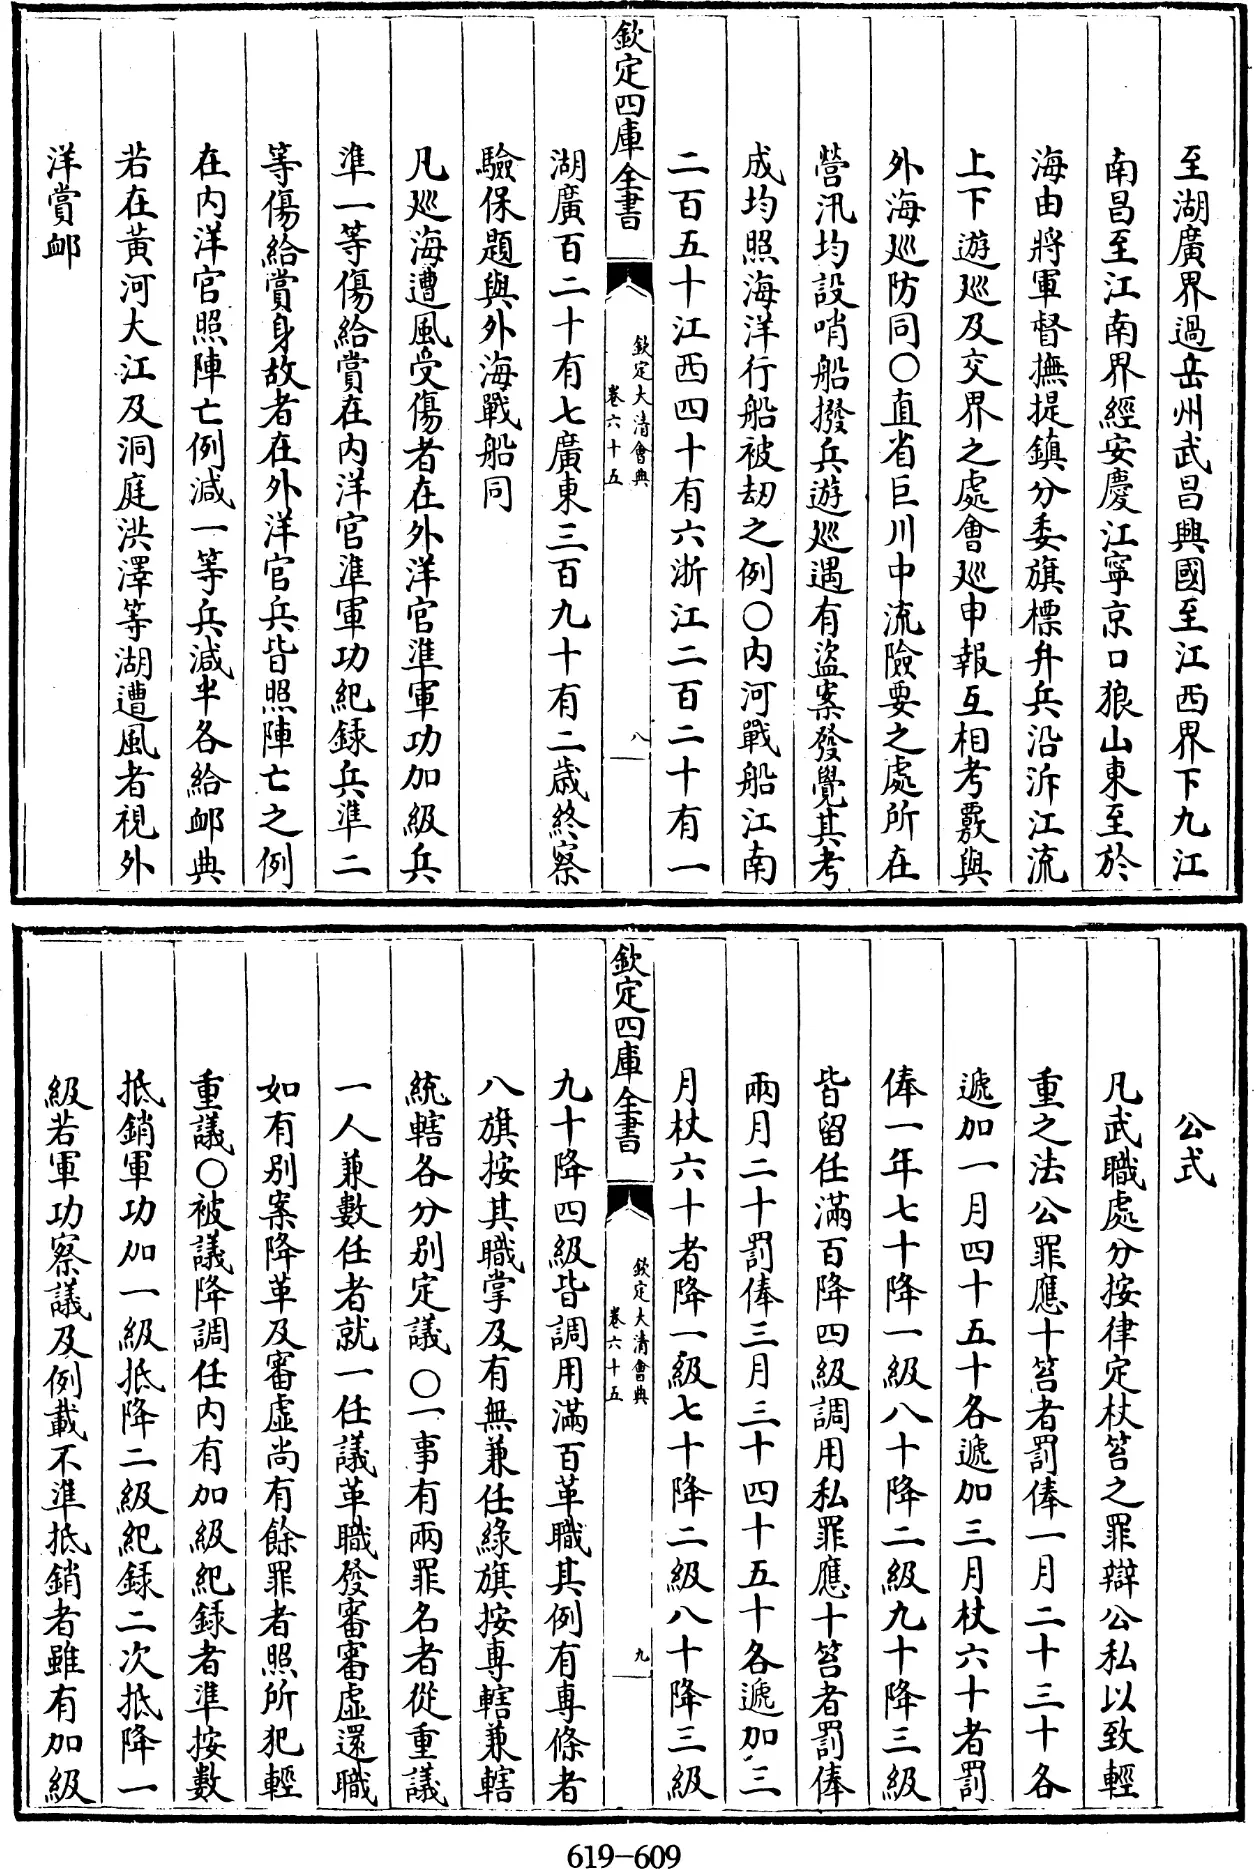 至湖廣界過岳州武昌興國至江西界下九江
南昌至江南界經安慶江寧京口狼山東至於
海由將軍督撫提鎮分委旗標弁兵沿泝江流
上下遊巡及交界之處會巡申報互相考覈與
外海巡防同○直省巨川中流險要之處所在
營汛均設哨船撥兵遊巡遇有盜案發覺其考
成均照海洋行船被刼之例○內河戰船江南
二百五十江西四十有六浙江二百二十有一
欽定四庫全書
欽定大清會典
卷六十五
八
湖廣百二十有七廣東三百九十有二歲終察
驗保題與外海戰船同
凡巡海遭風受傷者在外洋官準軍功加級兵
準一等傷給賞在內洋官準軍功紀録兵準二
等傷給賞身故者在外洋官兵皆照陣亡之例
在內洋官照陣亡例減一等兵減半各給卹典
若在黃河大江及洞庭洪澤等湖遭風者視外
洋賞卹
公式
凡武職處分按律定杖笞之罪辯公私以致輕
重之法公罪應十笞者罰俸一月二十三十各
遞加一月四十五十各遞加三月杖六十者罰
俸一年七十降一級八十降二級九十降三級
皆留任滿百降四級調用私罪應十笞者罰俸
兩月二十罰俸三月三十四十五十各遞加三
月杖六十者降一級七十降二級八十降三級
欽定四庫全書
欽定大清會典
卷六十五
九
九十降四級皆調用滿百革職其例有專條者
八旗按其職掌及有無兼任綠旗按專轄兼轄
統轄各分別定議○一事有兩罪名者從重議
一人兼數任者就一任議革職發審審虛還職
如有別案降革及審虛尚有餘罪者照所犯輕
重議○被議降調任內有加級紀録者準按數
抵銷軍功加一級抵降二級紀録二次抵降一
級若軍功察議及例載不準抵銷者雖有加級
619-609